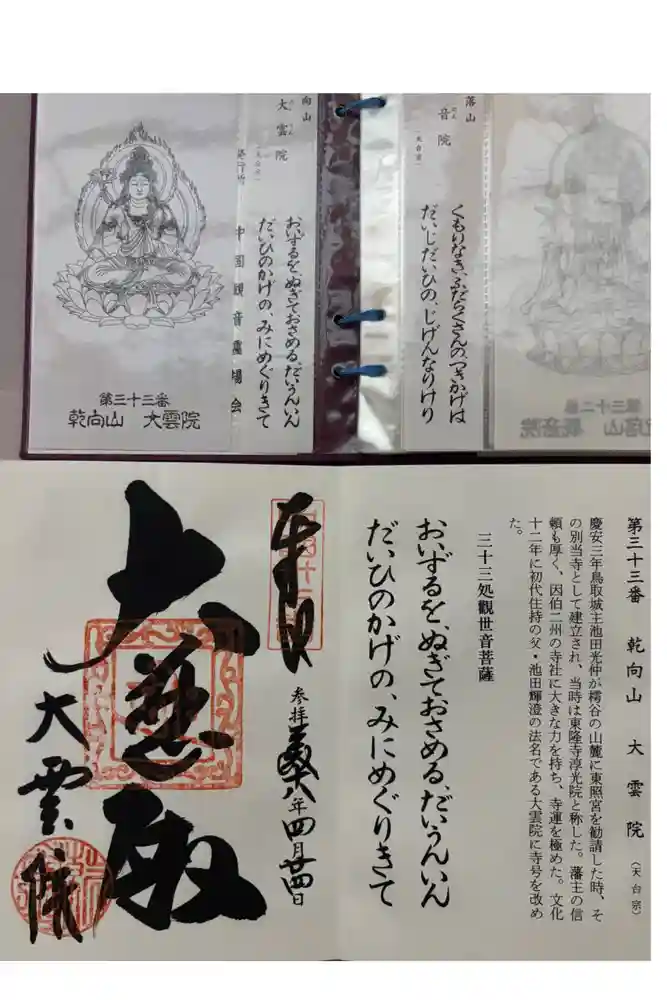 落山
音院
くもりなき、ふだらくさんの、つきかげは
だいじだいひの、じげんなりけり
向山
大雲院
(天台宗)
おいずるを、ぬぎておさめる、だいうんいん
だいひのかげの、みにめぐりきて
中国観音霊場会
第三十三番
乾向山 大雲院
第三十三番 乾向山 大雲院 (天台宗)
慶安三年鳥取城主池田光仲が樗谷の山麓に東照宮を勧請した時、そ
の別当寺として建立され、当時は東隆寺淳光院と称した。藩主の信
頼も厚く、因伯二州の寺社に大きな力を持ち、寺運を極めた。文化
十二年に初代住持の父・池田輝澄の法名である大雲院に寺号を改め
た。
三十三処観世音菩薩
おいずるを、ぬぎておさめる、だいうんいん
だいひのかげの、みにめぐりきて
奉拝
参拝 年四月廿四日
大悲殿
大雲院